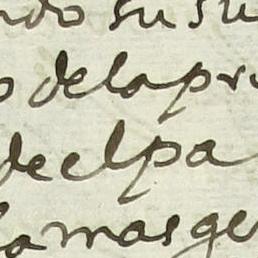 ndo su su
o de la pr
de el pa
la mas ge